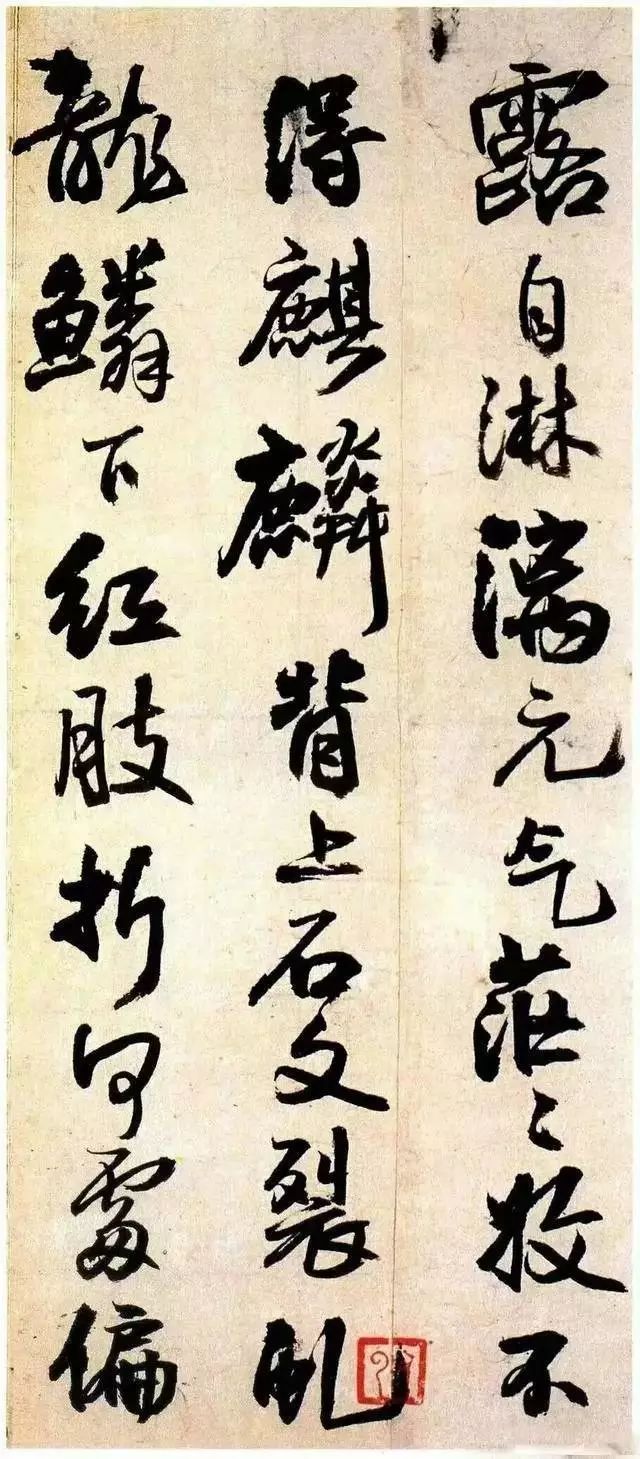 露自淋漓元气茫々收不
得麒麟背上石文裂虬
龍鱗下紅肢折何處偏